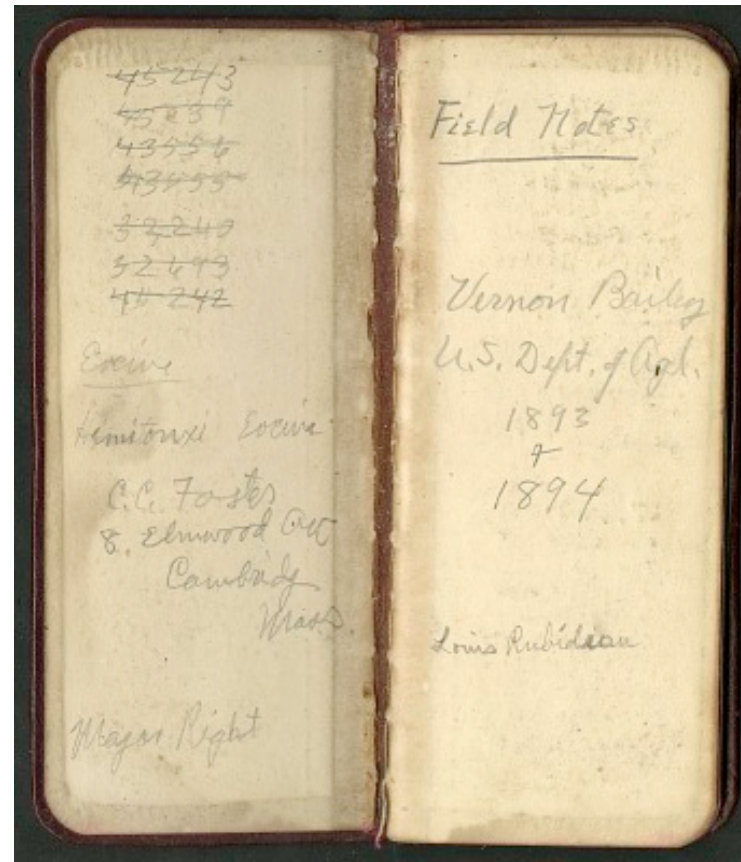 45243
45239
43556
43555
32,249
32693
45242
Eocine
Eocine
C.C. Foster
8. Elmwood Ave
Cambridg
Mass.
Major Right
Field Notes
Vernon Bailey
U.S. Dept. of Agl.
1893
+
1894
Louis Rubideau